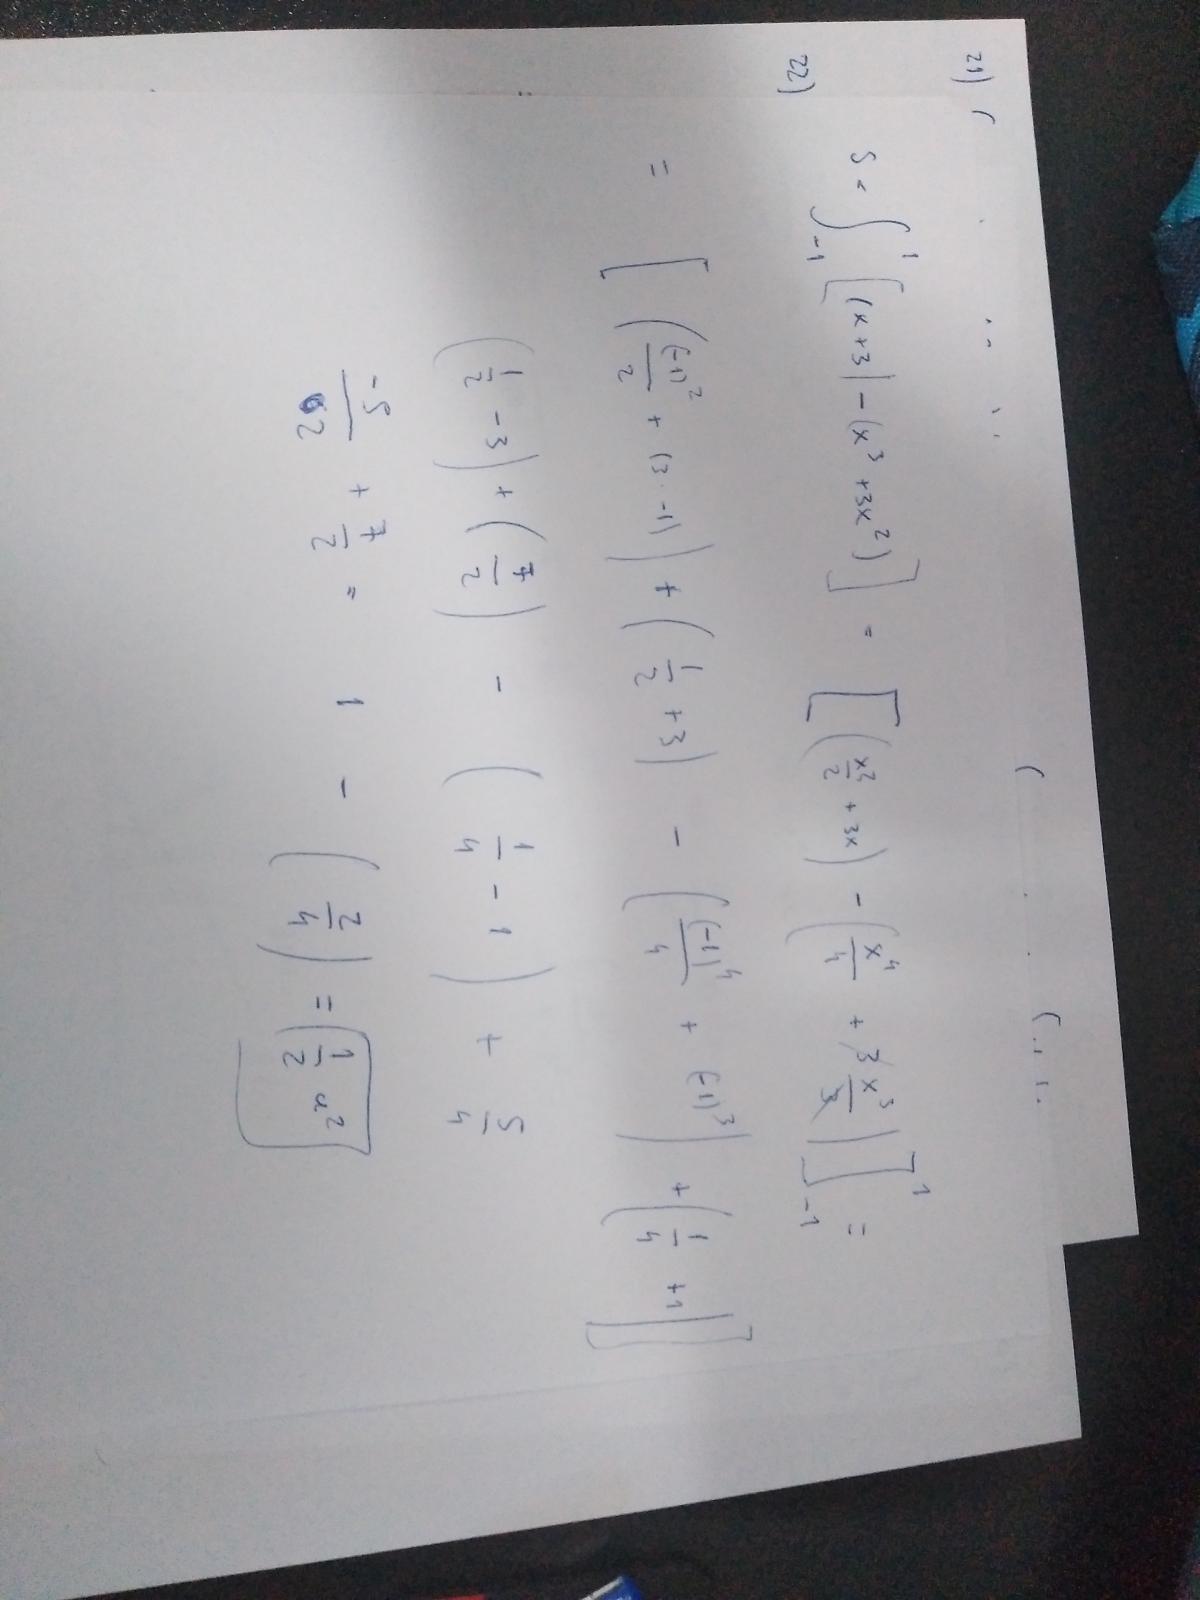 21) (
22)
S = ∫_{-1}^{1} [(x+3) - (x³ + 3x²)] = [(x²/2 + 3x) - (x⁴/4 + 3x³/3)]_{-1}^{1} =
= [((-1)²/2 + (3·-1)) + (1/2 + 3) - ((-1)⁴/4 + (-1)³) + (1/4 + 1)]
(1/2 - 3) + (7/2) - (1/4 - 1) + 5/4
-5/2 + 7/2 = 1 - (2/4) = 1/2 u²